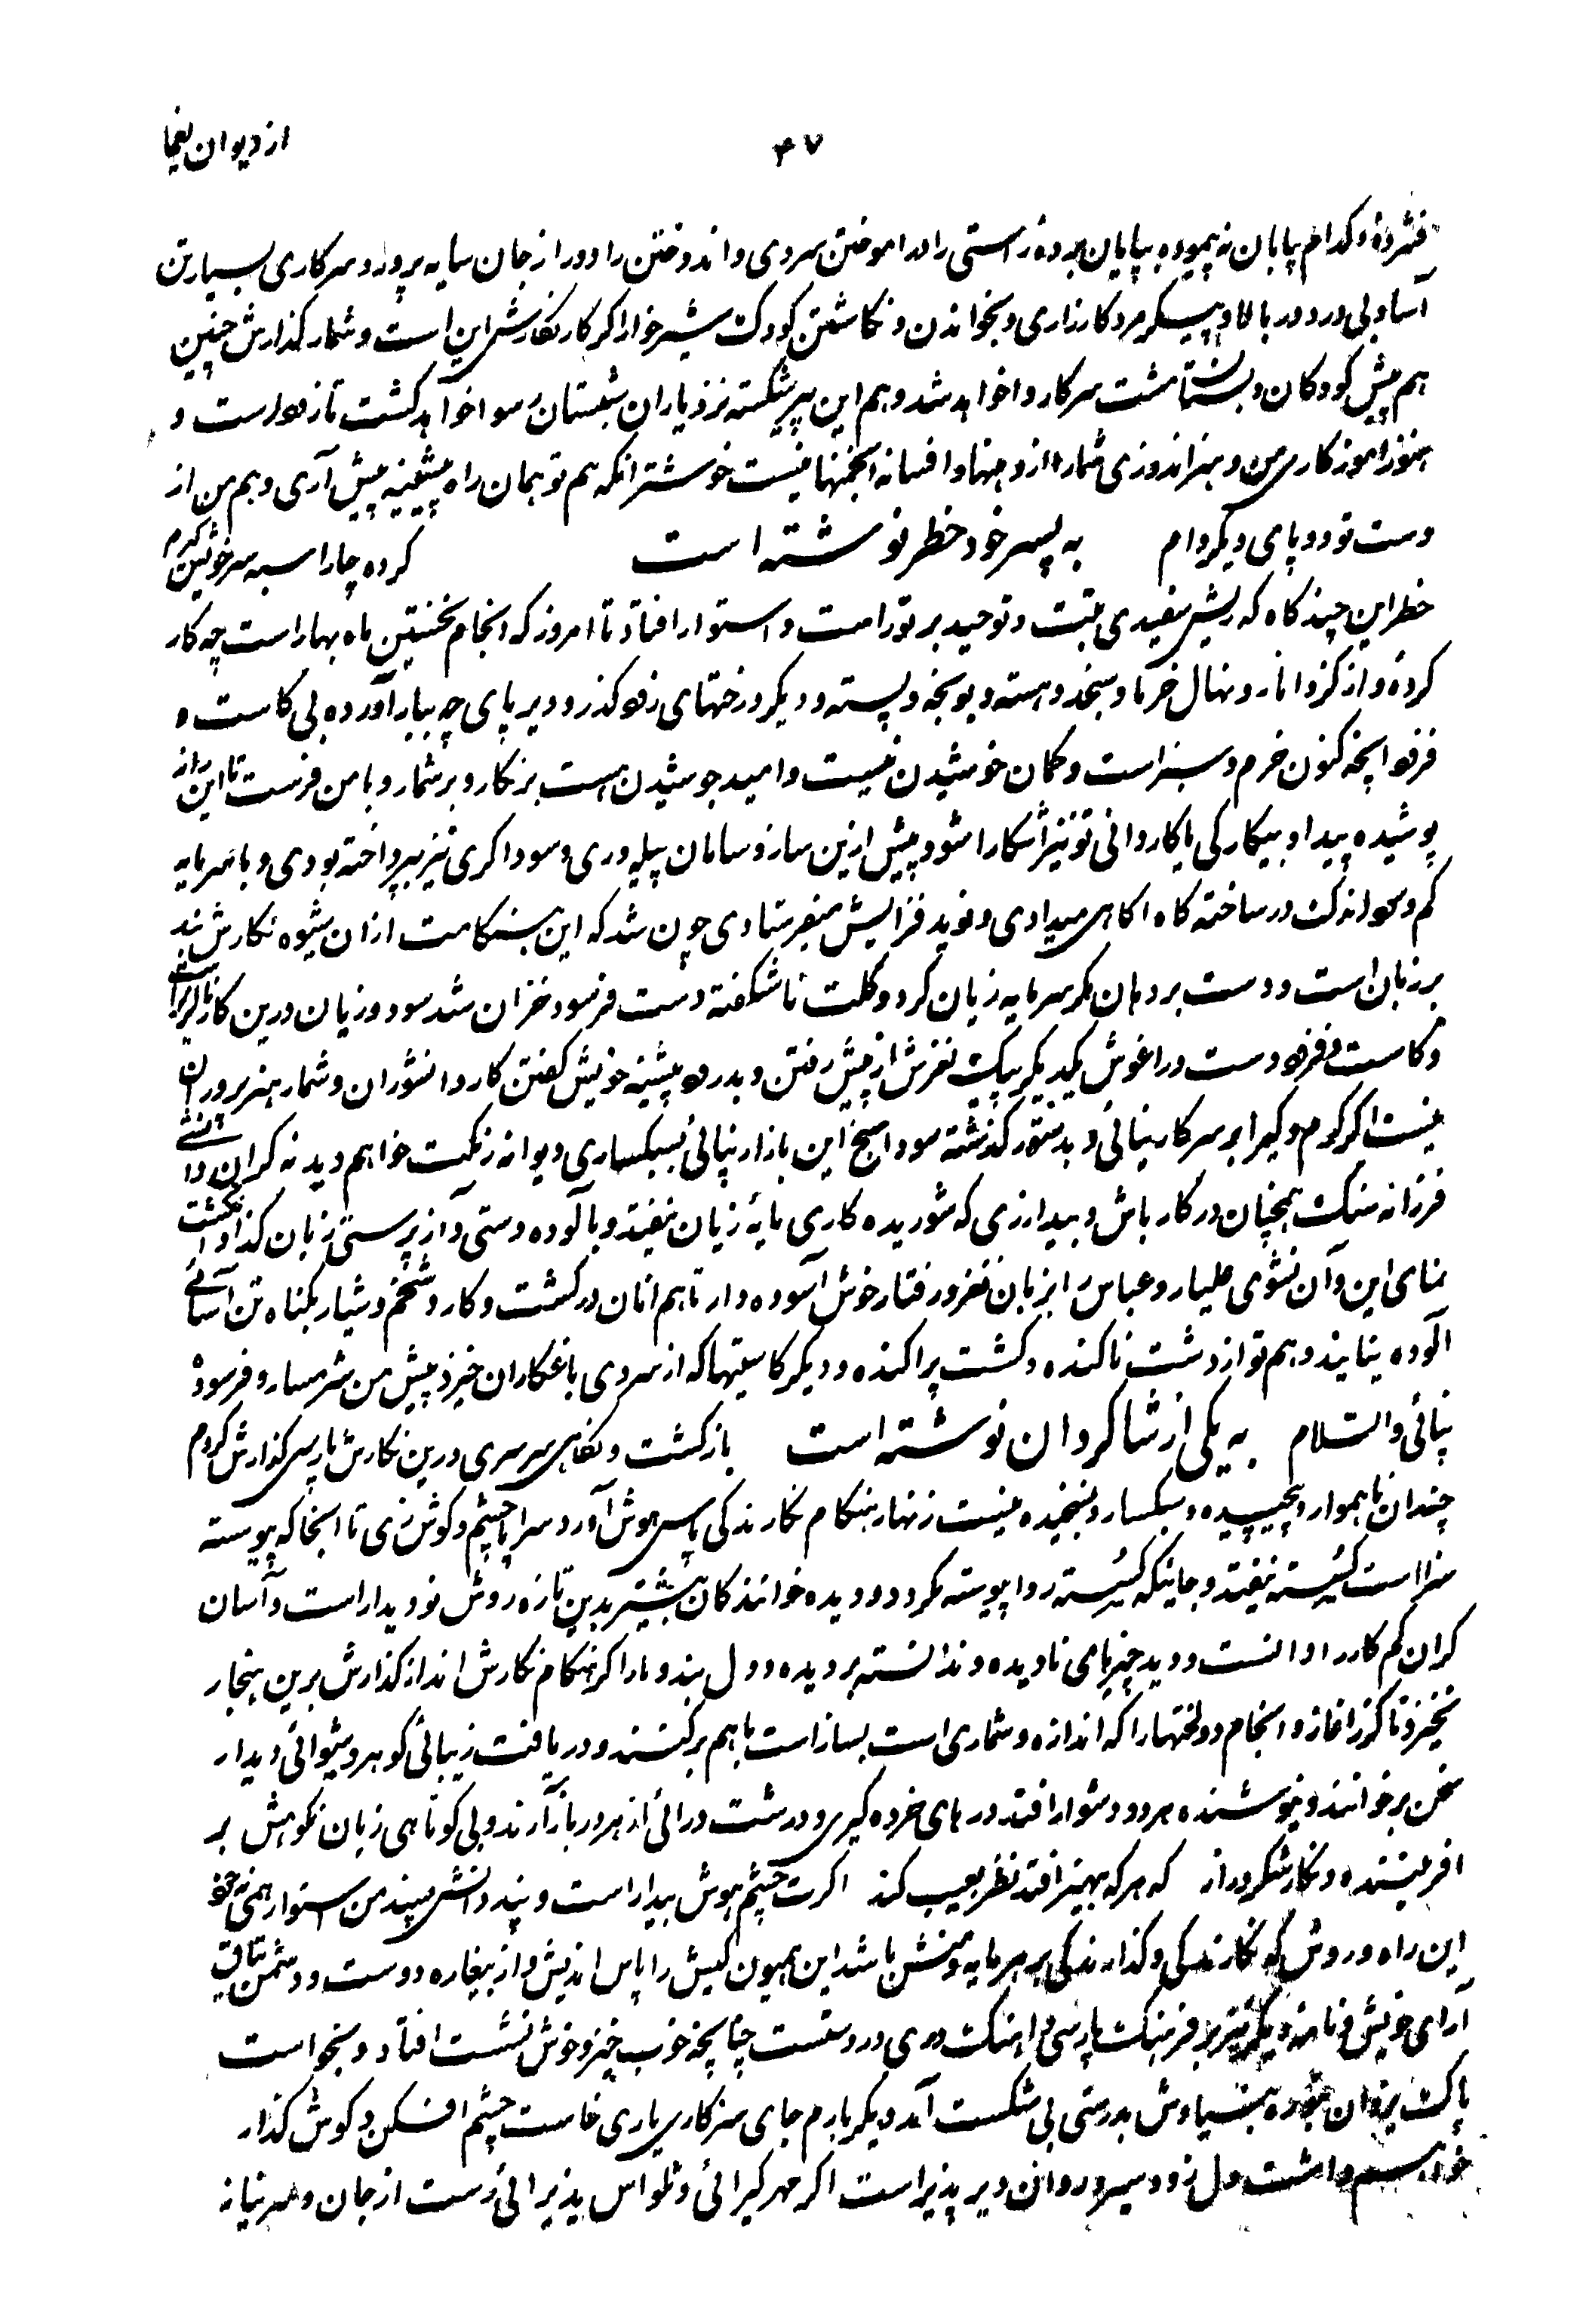 از دیوان یغما
۴۷
فشرده و کدام پایان نه پیموده بپایان برده راستی را اموختن سردی و اندوختن را دور از جان سایه پرور و سرکاری بسیار تن
آسا و بی درد در بالا و پیکر مرد کارزاری و بخواندن و نکاشتن کودک شیرخوار اکر کار نکارش این است و شمار کذارش چنین
هم پیش کودکان دبستانت مشت سرکار وا خواهد شد و هم این پیر شکسته نزد یاران شبستان رسوا خواهد کشت تا زود است و
هنوز اموزکاری من و هنر اندوزی شمارا از دهنها و افسانه انجمنها نیست خوشتر انکه هم تو همان راه پیشینه پیش آری و هم من از
دست تو دو پای دیکر وام به پسر خود خطر نوشته است کرده چار اسبه سر خویش کیرم
خطر این چند کاه که ریش سفیدی تبت و توحید بر تو راست و استوار افتاد تا امروز که انجام نخستین ماه بهار است چه کار
کرده و از کز و انار و نهال خرما و سنجد و هسته و یونجه و پسته و دیکر درختهای زود کذر و دیر پای چه ببار آورده بی کاست و
فزود انچه کنون خرم و سبز است و کمان خوشیدن نیست و امید جوشیدن هست بر نکار و بر شمار و با من فرست تا این راز
پوشیده پیدا و بیکارکی یا کاردانی تو نیز آشکارا شود پیش ازین ساز و سامان پیله وری و سوداکری نیز بپرداخته بودی و با سرمایه
کم و سود اندک در ساخته کاه اکاهی میدادی و نوید فزایش میفرستادی چون شد که این هنکامت از ان شیوه نکارش بند
بر زبان است و دست بر دهان مکر سرمایه زیان کرد و کلت نا شکفته دست فرسود خزان شد سود و زیان درین کار
و کاست و فزود دست در اغوش یکدیکر پیک نغزش از پیش رفتن و بدرود پیشینه خویش کفتن کار دانشوران و شمار هنرپروران
نیست اکر کرم و کیرا بر سر کار نیائی و بدستور کذشته سودا سنج این بازار نپائی سبکساری دیوانه رنکت خواهم دید نه کران دانشی
فرزانه سنک همچنان در کار باش و بیدار زی که شوریده کاری مایه زیان نیفتد و با آلوده دستی و آز پرستی زبان کذار و انکشت
نمای این و آن نشوی علیار و عباس را بزبان نغز و رفتار خوش آسوده دار تا هم انان در کشت و کار و شخم و شیار بکناه تن آسائی
آلوده نیایند و هم تو از دشت ناکنده و کشت پراکنده و دیکر کاستیها که از سردی باغکاران خیزد پیش من شرمسار و فرسوده
نپائی والسلام به یکی از شاکردان نوشته است بازکشت و نکاهی سرسری درین نکارش پارسی کذارش کردم
چندان ناهموار و پیچیده و سبکسار و نسنجیده نیست زنهار هنکام نکارندکی پاس هوش آور و سراپا چشم و کوش زی تا انجا که پیوسته
سزا است کسسته نیفتد و جائیکه کسسته روا پیوسته نکردد و دیده خوانندکان بیشتر بدین تازه روش نو دیدار است و آسان
کران کم کار را دانست و دید چیزهای نادیده و ندانسته بر دیده و دل بند و مارا کر هنکام نکارش انداز کذارش برین هنجار
نخیزد ناکزر اغاز و انجام و لختها را که اندازه و شماری است بساز است با هم برکنند و دریافت زیبائی کوهر و شیوائی دیدار
سخن بر خوانند و نیوشنده هر دو دشوار افتد در های خرده کیری و درشت درائی از هر در باز آرند و بی کوتاهی زبان نکوهش بر
افریننده و نکارشکر دراز که هر که بیهنر افتد نظر بعیب کند اکرت چشم هوش بیدار است و پند دانش پسند من استوار همی
این راه و روش کو نکارندکی و کذارندکی بر هر مایه و منش باشد این همیون کیش را پاس اندیش و از بیغاره دوست و دشمن
آرای خویش دیکر نیز بر فرهنک پارسی و اهنک دری در دستست چنانچه خوب خیز و خوش نشست افتاد و بخواست
پاک یزدان بدرستی بی شکست آمد دیکر بارم جای سرکاری یاری خاست چشم افکن و کوش کذار
خواهم داشت دل زود سیر و روان دیر پذیر است اکر مهر کیرائی و پذیرائی رست از جان و